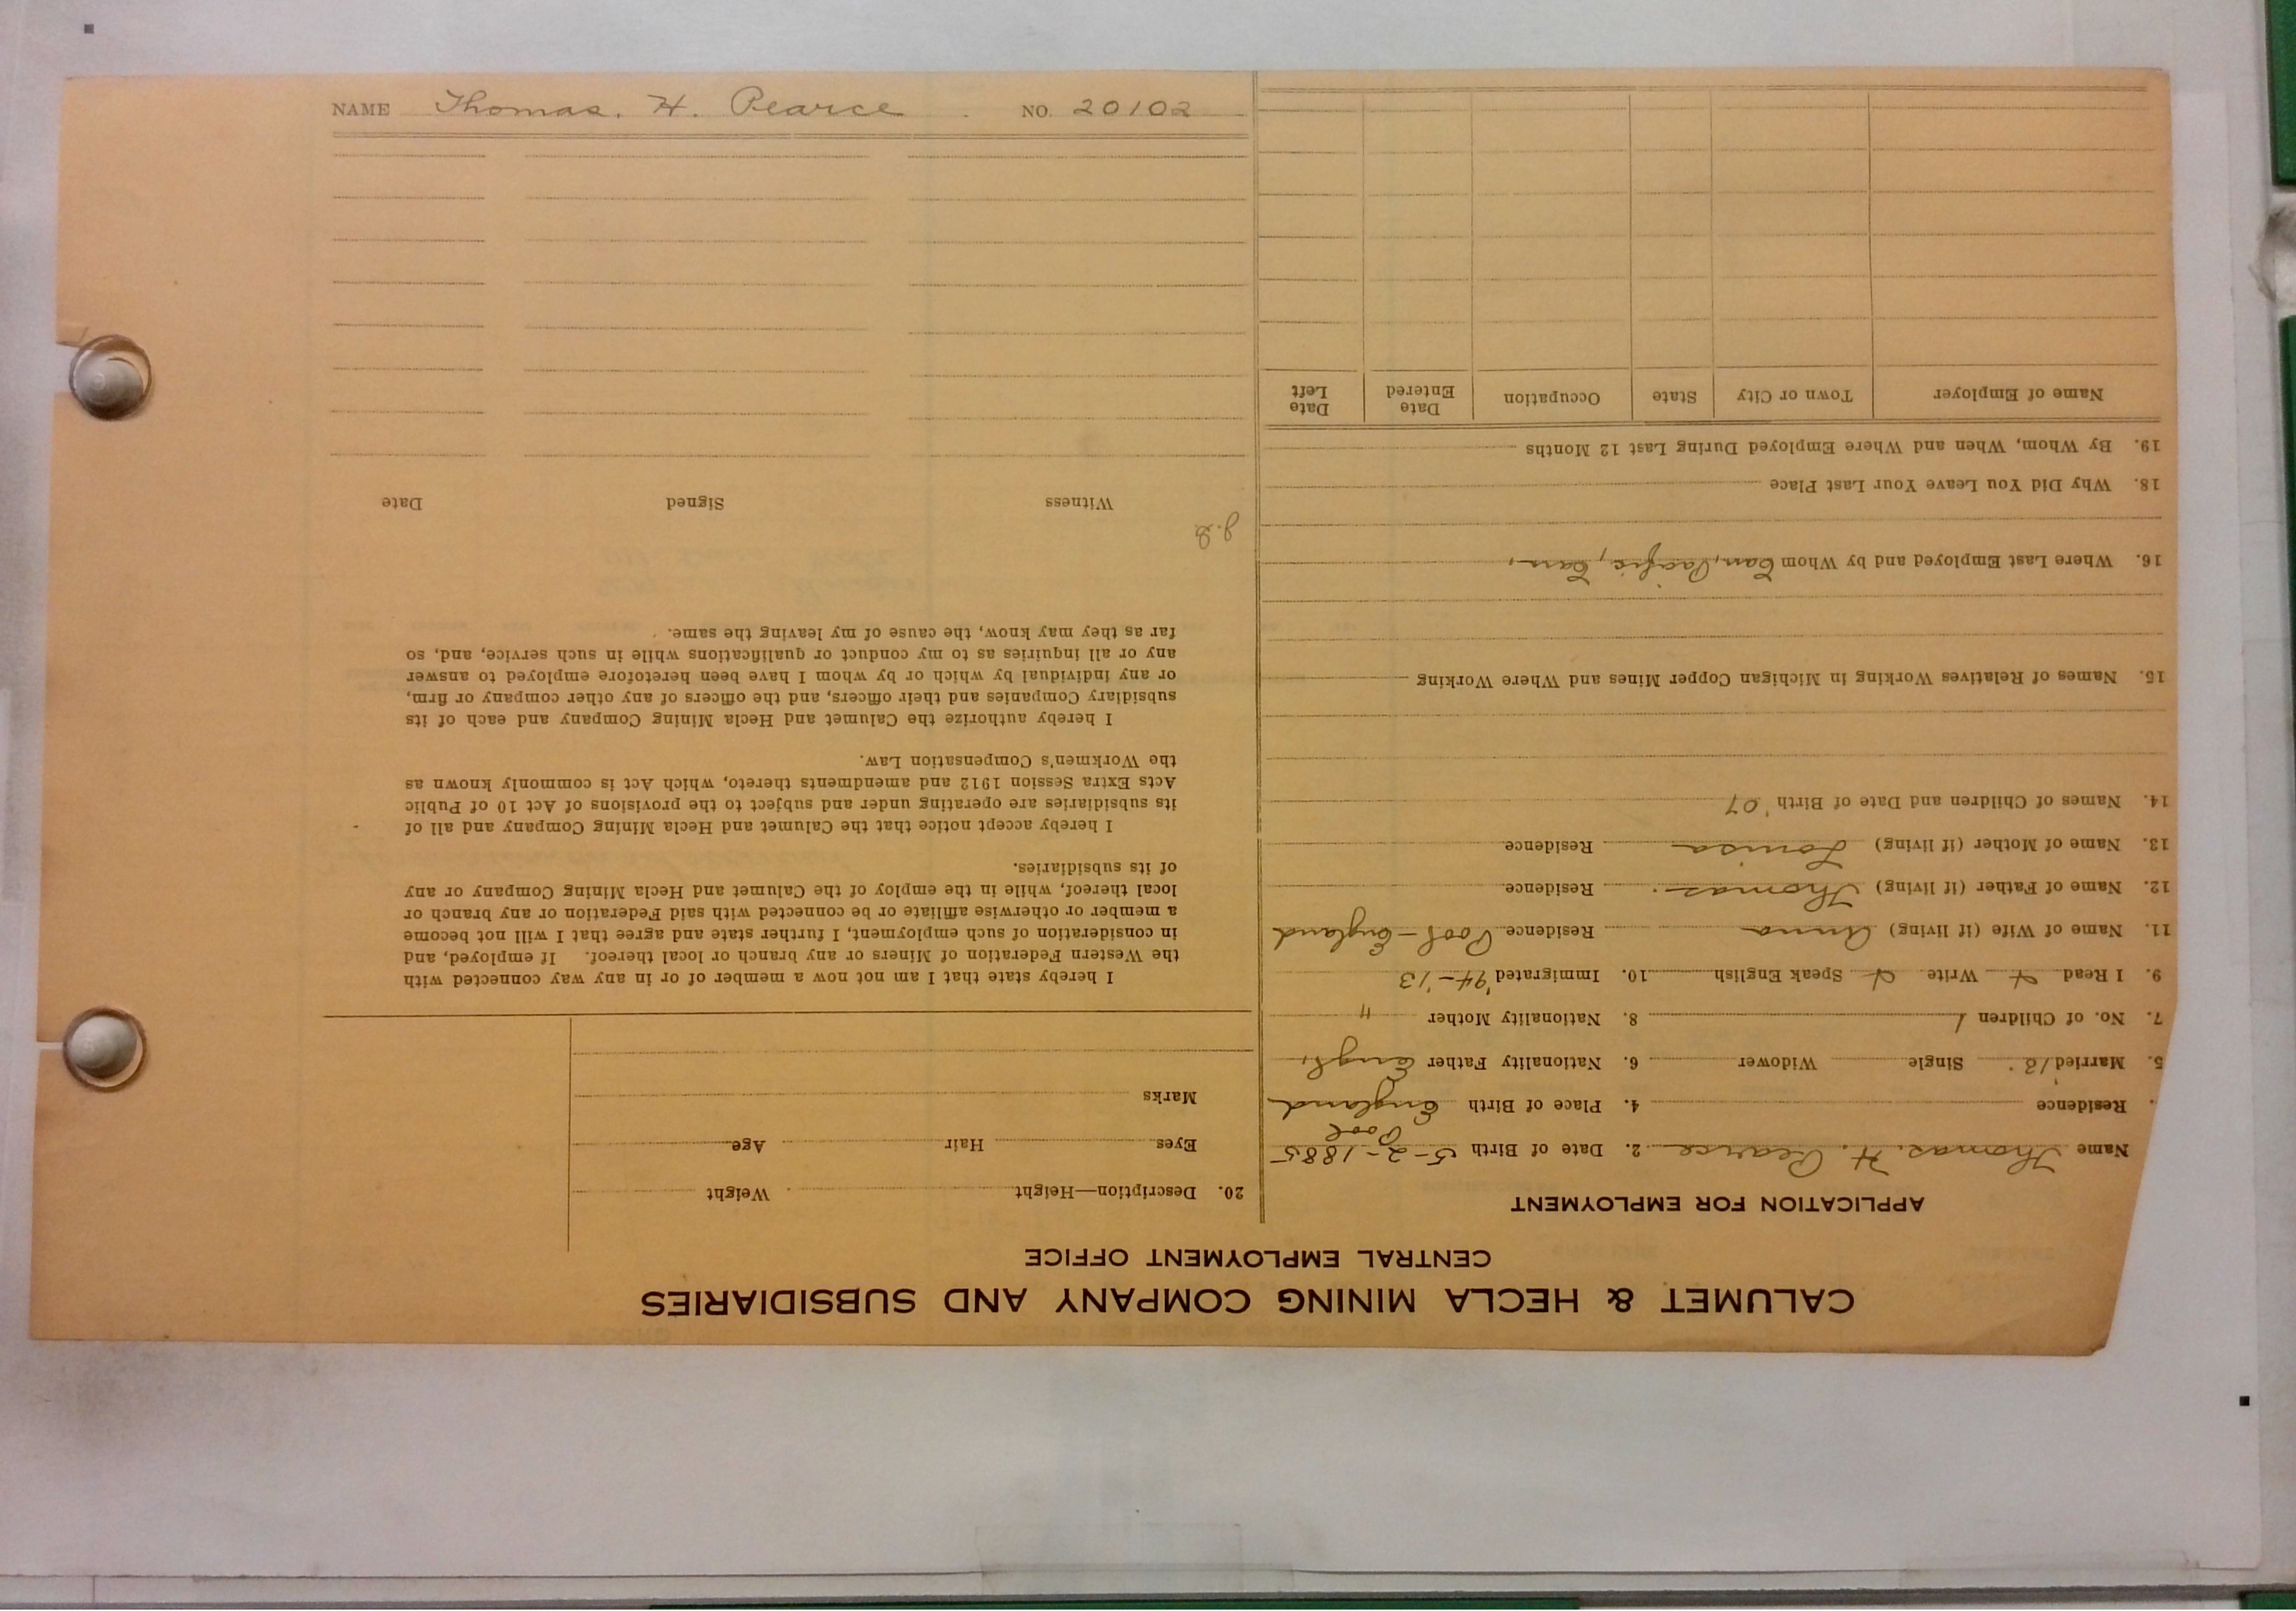 NAME Thomas. H. Pearce NO. 20102
CALUMET & HECLA MINING COMPANY AND SUBSIDIARIES
CENTRAL EMPLOYMENT OFFICE
APPLICATION FOR EMPLOYMENT
Name Thomas. H. Pearce 2. Date of Birth 5-2-1885
Pool
Residence 4. Place of Birth England
5. Married '13. Single Widower 6. Nationality Father Engl.
7. No. of Children 1 8. Nationality Mother "
9. I Read Write Speak English 10. Immigrated '94-'13
11. Name of Wife (if living) Anna Residence Pool-England
12. Name of Father (if living) Thomas. Residence
13. Name of Mother (if living) Louisa Residence
14. Names of Children and Date of Birth '07
15. Names of Relatives Working in Michigan Copper Mines and Where Working
16. Where Last Employed and by Whom Can, Pacific, Can,
18. Why Did You Leave Your Last Place
19. By Whom, When and Where Employed During Last 12 Months
Name of Employer Town or City State Occupation Date Entered Date Left
20. Description—Height Weight
Eyes Hair Age
Marks
I hereby state that I am not now a member of or in any way connected with
the Western Federation of Miners or any branch or local thereof. If employed, and
in consideration of such employment, I further state and agree that I will not become
a member or otherwise affiliate or be connected with said Federation or any branch or
local thereof, while in the employ of the Calumet and Hecla Mining Company or any
of its subsidiaries.
I hereby accept notice that the Calumet and Hecla Mining Company and all of
its subsidiaries are operating under and subject to the provisions of Act 10 of Public
Acts Extra Session 1912 and amendments thereto, which Act is commonly known as
the Workmen's Compensation Law.
I hereby authorize the Calumet and Hecla Mining Company and each of its
subsidiary Companies and their officers, and the officers of any other company or firm,
or any individual by which or by whom I have been heretofore employed to answer
any or all inquiries as to my conduct or qualifications while in such service, and, so
far as they may know, the cause of my leaving the same.
Witness Signed Date